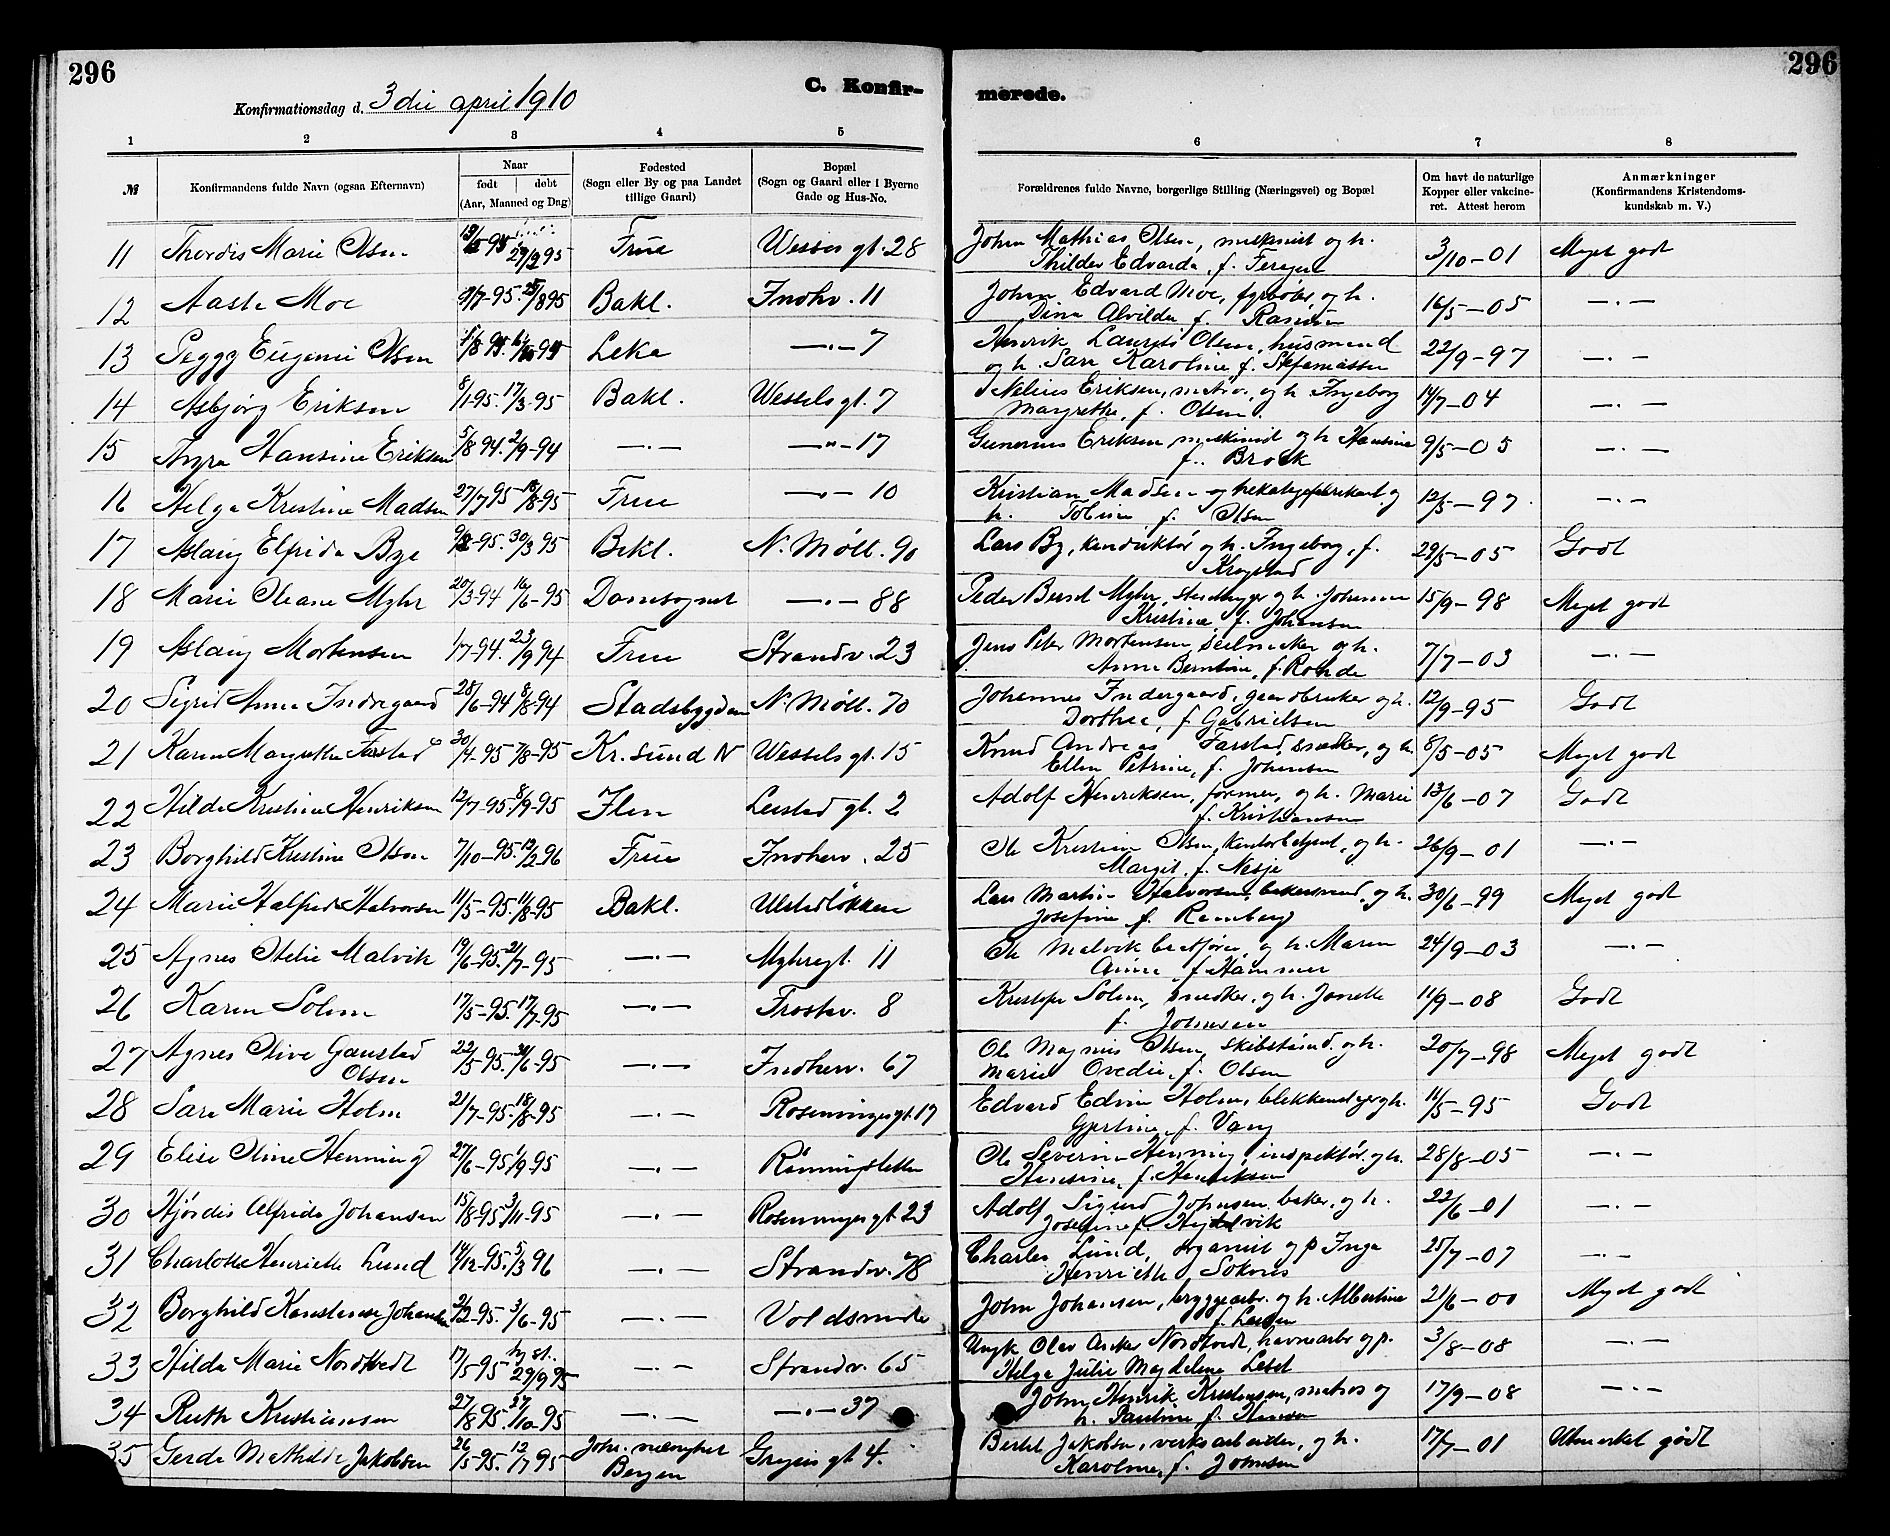 296
296
Konfirmationsdag d. 3die april 1910
C. Konfir-
merede.
1 2 3 4 5 6 7 8
№
Konfirmandens fulde Navn (ogsaa Efternavn)
Naar
født | døbt
(Aar, Maaned og Dag)
Fødested
(Sogn eller By og paa Landet
tillige Gaard)
Bopæl
(Sogn og Gaard eller i Byerne
Gade og Hus-No.
Forældrenes fulde Navne, borgerlige Stilling (Næringsvei) og Bopæl
Om havt de naturlige
Kopper eller vakcine-
ret. Attest herom
Anmærkninger
(Konfirmandens Kristendoms-
kundskab m. V.)
11 Thordis Marie Olsen 29/9 95 Frue Wessels gt. 28 John Mathias Olsen, maskinist og h. 3/10-01 Meget godt
Thilder Edvarda, f.
12 Aasta Moe 95 Bakl. Indhv. 11 Johan Edvard Moe, fyrbøter, og h. 16/5-05 —.—
Dina Alvilda f.
13 Peggy Eugenie Olsen Leka —.— 7 Henrik Laurits Olsen, husmand 22/9-97 —.—
og h. Sara Karoline, f. Stefanassen
14 Asbjørg Eriksen 8/1-95. 17/3-95 Bakl. Wessels gt. 7 Nelius Eriksen, matros, og h. Ingeborg 14/7-04 —.—
Margrethe, f. Olsen.
15 Thyra Hansine Eriksen 5/8 94. 2/9-94 —.— —"— 17 Gunerius Eriksen maskinist og h. Hansine 9/5-05 —.—
f. Brock
16 Helga Kristine Madsen 27/7 95 18/8-95 Frue —.— 10 Kristian Madsen og h. 12/5-97. —.—
h. Tobine f. Olsen
17 Aslaug Elfrida Bye 30/3 95 Bakl. N. Møll. 90 Lars By, konduktør og h. Ingeborg, f. 29/5-05 Godt
Krogstad
18 Marie Oleane Myhr 20/3-94 16/6-95 Domsognet —.— 88 Peder Bernt Myhr, og h. Johanna 15/9-98 Meget godt
Kristine f. Johansen
19 Aslaug Mortensen 1/7-94. 23/9 94 Frue Strandv. 23 Jens Peter Mortensen seilmaker og h. 7/7-03 —.—
Anna Berntine, f. Rohde
20 Sigrid Anna Indregaard 28/6-94 8/8-94 Stadsbygden N. Møll. 70 Johannes Indergaard, gaardbruker og h. 12/9-95 Godt
Dorthea, f. Gabrielsen
21 Karen Margrethe Farstad 30/4-95 7/8-95 Kr.sund N Wessels gt. 15 Knud Andreas Farstad, snedker, og h. 8/5-05 Meget godt
Ellen Petrine, f. Johansen
22 Hilda Kristine Henriksen 12/7-95. 8/9-95 Ilen Leistad gt. 2 Adolf Henriksen, former, og h. Marie 13/6-07 Godt
f. Kristiansen
23 Borghild Kristine Olsen 7/10-95. 12/2 96 Frue Indherv. 25 Ole Kristian Olsen, kontorbetjent, og h. 26/9-01 —.—
Margit f. Nesje
24 Marie Halfrida Halvorsen 11/5-95. 11/8-95 Bakl. Ulstadløkken Lars Martin Halvorsen, bakersvend, og h. 30/6-99 Meget godt
Josefine f. Ramberg
25 Agnes Otelie Malvik 19/6-95. 21/7-95 —.— Myhregt. 11 Ole Malvik baatfører, og h. Maren 24/9-03 —.—
Anna f. Hammer
26 Karen Solem 17/5-95. 17/7-95 —.— Frostav. 8 Kristofer Solem, snedker, og h. Jonetta 11/9-08 Godt
f. Johnsen
27 Agnes Olive Gaustad 22/5-95. 30/6-95 —.— Indherv. 67 Ole Magnus Olsen, skibstømd. og h. 20/7-98 Meget godt
Olsen
Marie Ovedie, f. Olsen
28 Sara Marie Holm 21/7-95. 18/8-95 —.— Rosenvinges gt. 17 Edvard Edvin Holm, blikkenslager og h. 11/5-95 Godt
Gjertine, f. Vang
29 Elise Oline Henning 27/6-95 1/9-95 —.— Rønningsletta Ole Severin Henning, inspektør, og h. 28/8-05 —.—
Hansine, f. Henriksen
30 Hjørdis Alfrida Johansen 15/8-95 3/11-95 —.— Rosenvinges gt. 23 Adolf Sigurd Johansen baker, og h. 22/6-01 —.—
Josefine f.
31 Charlotte Henriette Lund 14/12-95. 5/3 96 —.— Strandv. 78 Charles Lund, organist og p. Inga 25/7-07 —.—
Henriette Soknes
32 Borghild Konstanse Johansen 2/2-95. 3/6-95 —.— Voldsminde John Johansen, bryggearb. og h. Albertine 21/6-00 Meget godt
f. Larsen
33 Hilda Marie Nordtvedt 17/5 95 hj.d. 29/9 95 —.— Strandv. 65 Ungk. Olav Anker Nordtvedt, havnearb. og p. 3/8-08 —.—
Helga Julie Magdelena
34 Ruth Kristiansen 27/8 95. 27/10-95 —.— —.— 37 Johan Henrik Kristiansen, matros og 17/9-08 —.—
h. Pauline f. Hansen
35 Gerda Mathilde Jakobsen 26/5-95. 12/7 95 Joh. menighet Gryta gt 4. Bertel Jakobsen, verksarbeider, og h. 17/7-01 Utmerket godt
Bergen
Karoline, f. Johnsen